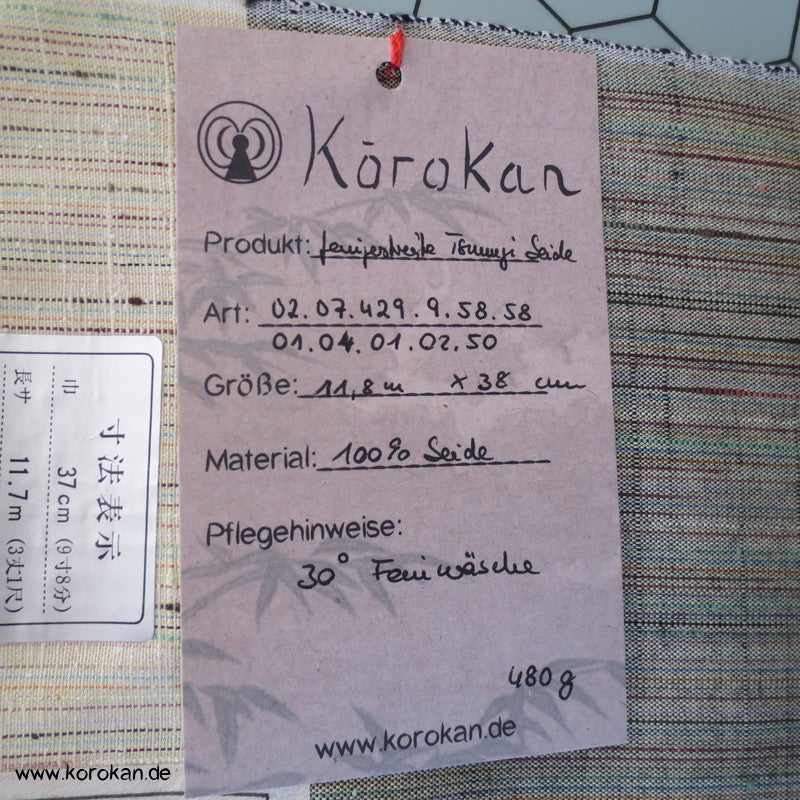 Kōrokan
Produkt: feingestreifte Tsumugi Seide
Art: 02.07.429.9.58.58
01.04.01.02.50
Größe: 11,8 m x 38 cm
Material: 100% Seide
Pflegehinweise:
30° Feinwäsche
480 g
www.korokan.de
寸法表示
巾 37cm (9寸8分)
長サ 11.7m (3丈1尺)
www.korokan.de